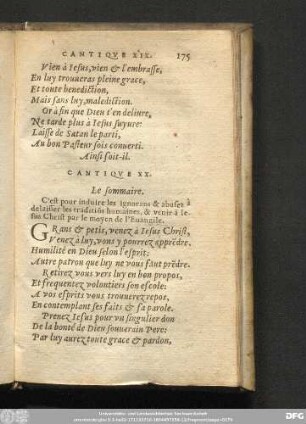 CANTIQVE XIX. 175
Vien à Iesus, vien & l'embrasse,
En luy trouueras pleine grace,
Et toute benediction,
Mais sans luy, malediction.
Or à fin que Dieu t'en deliure,
Ne tarde plus à Iesus suyure:
Laisse de Satan le parti,
Au bon Pasteur sois conuerti.
Ainsi soit-il.
CANTIQVE XX.
Le sommaire.
C'est pour induire les ignorans & abusez à
delaisser les traditiõs humaines, & venir à Ie-
sus Christ par le moyen de l'Euangile.
GRans & petis, venez à Iesus Christ,
Venez à luy, vous y pourrez apprẽdre.
Humilité en Dieu selon l'esprit:
Autre patron que luy ne vous faut prẽdre.
Retirez vous vers luy en bon propos,
Et frequentez volontiers son escole:
A vos esprits vous trouuerez repos,
En contemplant ses faits & sa parole.
Prenez Iesus pour vn singulier don
De la bonté de Dieu souuerain Pere:
Par luy aurez toute grace & pardon,
DFG